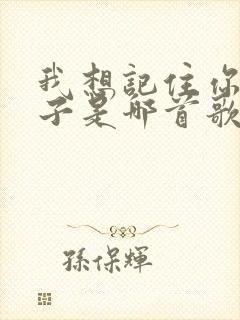 我想記住你
子是哪首歌
孫保輝